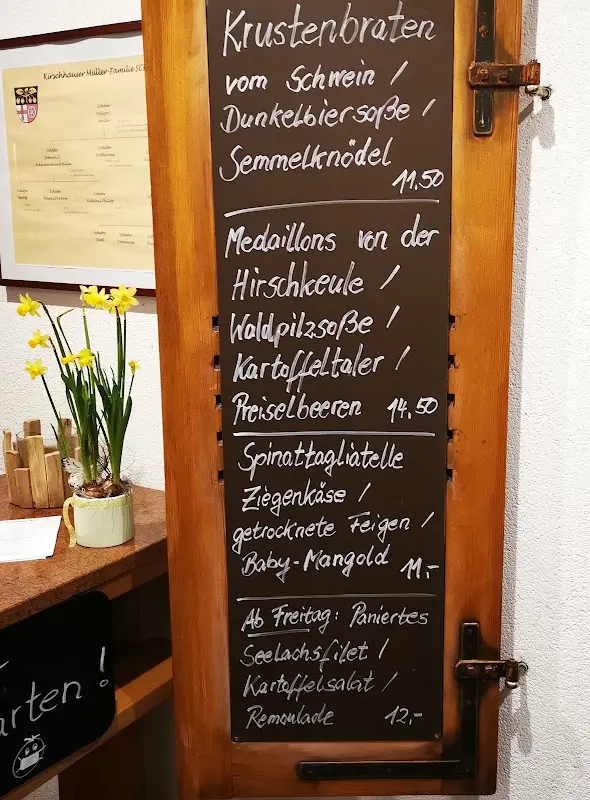 Kirschhäuser Müller-Familie
Krustenbraten
vom Schwein /
Dunkelbiersoße /
Semmelknödel
11.50
Medaillons von der
Hirschkeule /
Waldpilzsoße /
Kartoffeltaler /
Preiselbeeren 14.50
Spinattagliatelle
Ziegenkäse /
getrocknete Feigen /
Baby-Mangold 11,-
Ab Freitag: Paniertes
Seelachsfilet /
Kartoffelsalat /
Remoulade 12,-
arten !